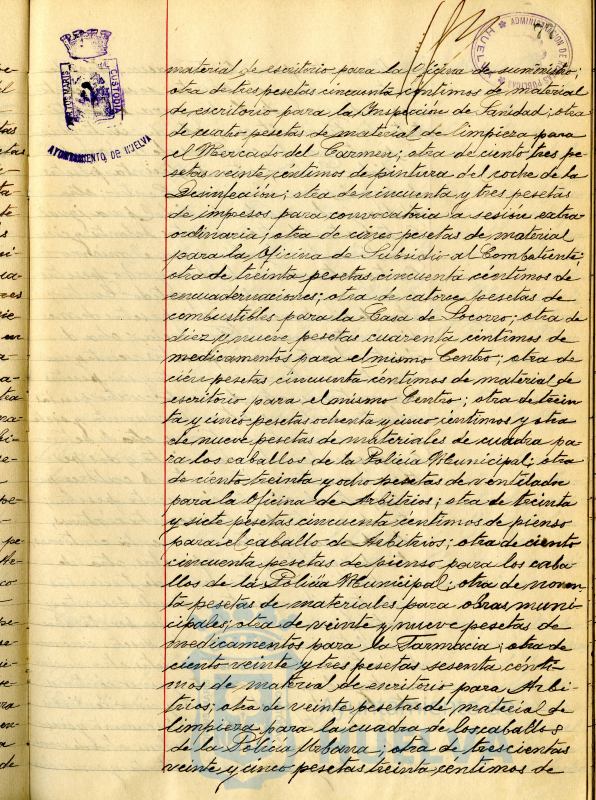 AYUNTAMIENTO DE HUELVA
material de escritorio para la Oficina de suministro;
otra de tres pesetas cincuenta centimos de material
de escritorio para la Inspección de Sanidad; otra
de cuatro pesetas de material de limpieza para
el Mercado del Carmen; otra de ciento tres pe-
setas veinte céntimos de pintura del coche de la
Desinfección; otra de cincuenta y tres pesetas
de impresos para convocatoria a sesion extra-
ordinaria; otra de cinco pesetas de material
para la Oficina de Subsidio al Combatiente;
otra de treinta pesetas cincuenta céntimos de
encuadernaciones; otra de catorce pesetas de
combustibles para la Casa de Socorro; otra de
diez y nueve pesetas cuarenta centimos de
medicamentos para el mismo Centro; otra de
cien pesetas cincuenta céntimos de material de
escritorio para el mismo Centro; otra de trein-
ta y cinco pesetas ochenta y cinco centimos y otra
de nueve pesetas de materiales de cuadra pa-
ra los caballos de la Policía Municipal; otra
de ciento treinta y ocho pesetas de ventilador
para la Oficina de Arbitrios; otra de treinta
y siete pesetas cincuenta céntimos de pienso
para el caballo de Arbitrios; otra de ciento
cincuenta pesetas de pienso para los caba-
llos de la Policía Municipal; otra de noven-
ta pesetas de materiales para obras muni-
cipales; otra de veinte y nueve pesetas de
medicamentos para la Farmacia; otra de
ciento veinte y tres pesetas sesenta cénti-
mos de material de escritorio para Arbi-
trios; otra de veinte pesetas de material de
limpieza para la cuadra de los caballos
de la Policía Urbana; otra de trescientas
veinte y cinco pesetas treinta céntimos de